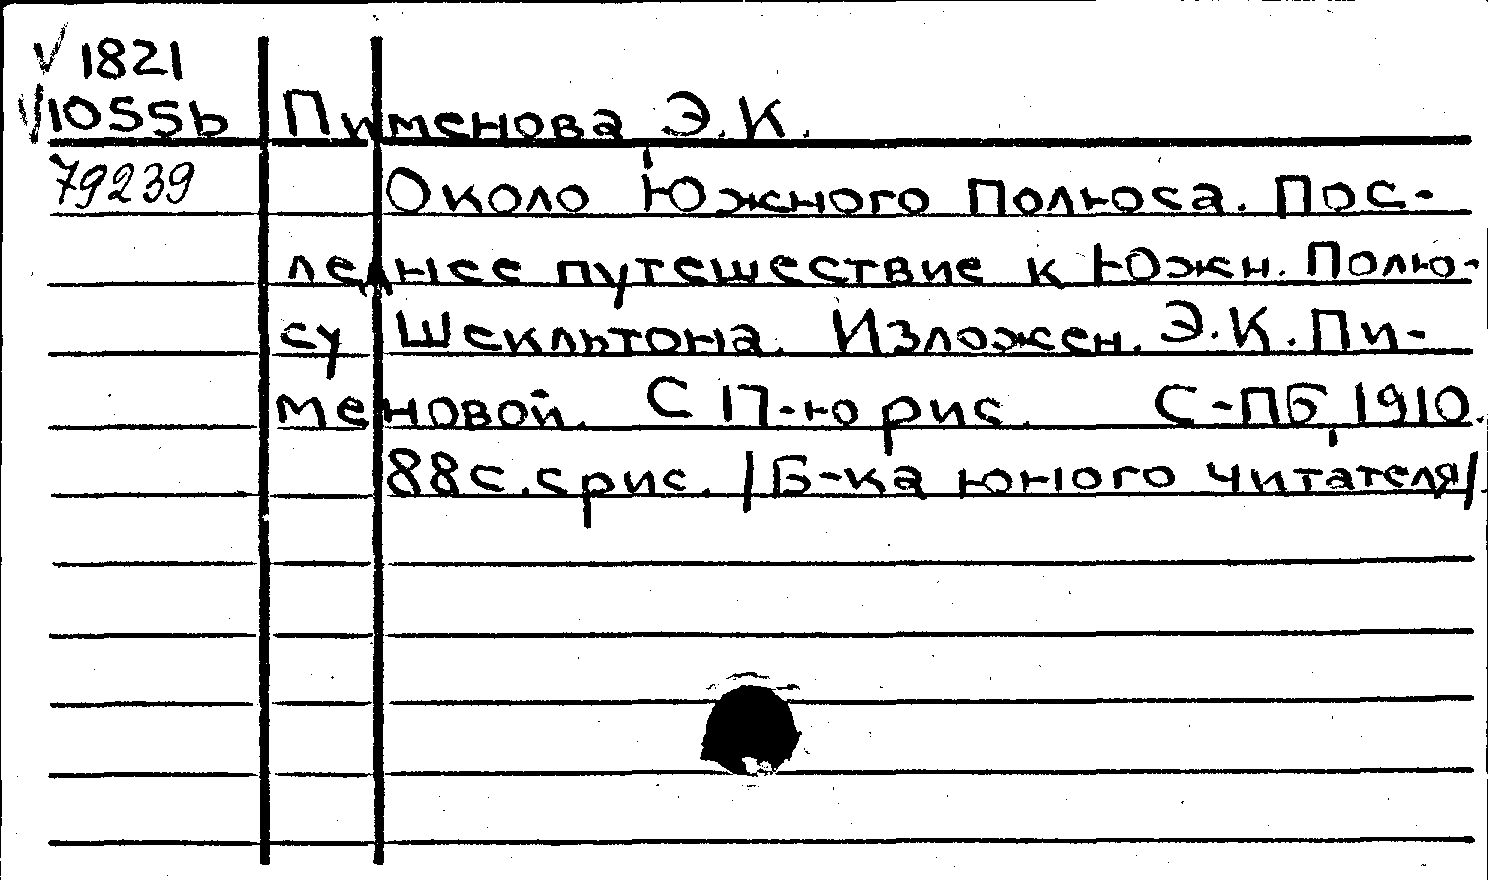 √ 1821
√ 10556 Пименова Э.К.
79239 Около Южного Полюса. Пос-
леднее путешествие к Южн. Полю-
су Шекльтона. Изложен. Э.К. Пи-
меновой. С 17-ю рис. С-ПБ, 1910.
88с. с рис. /Б-ка юного читателя/.